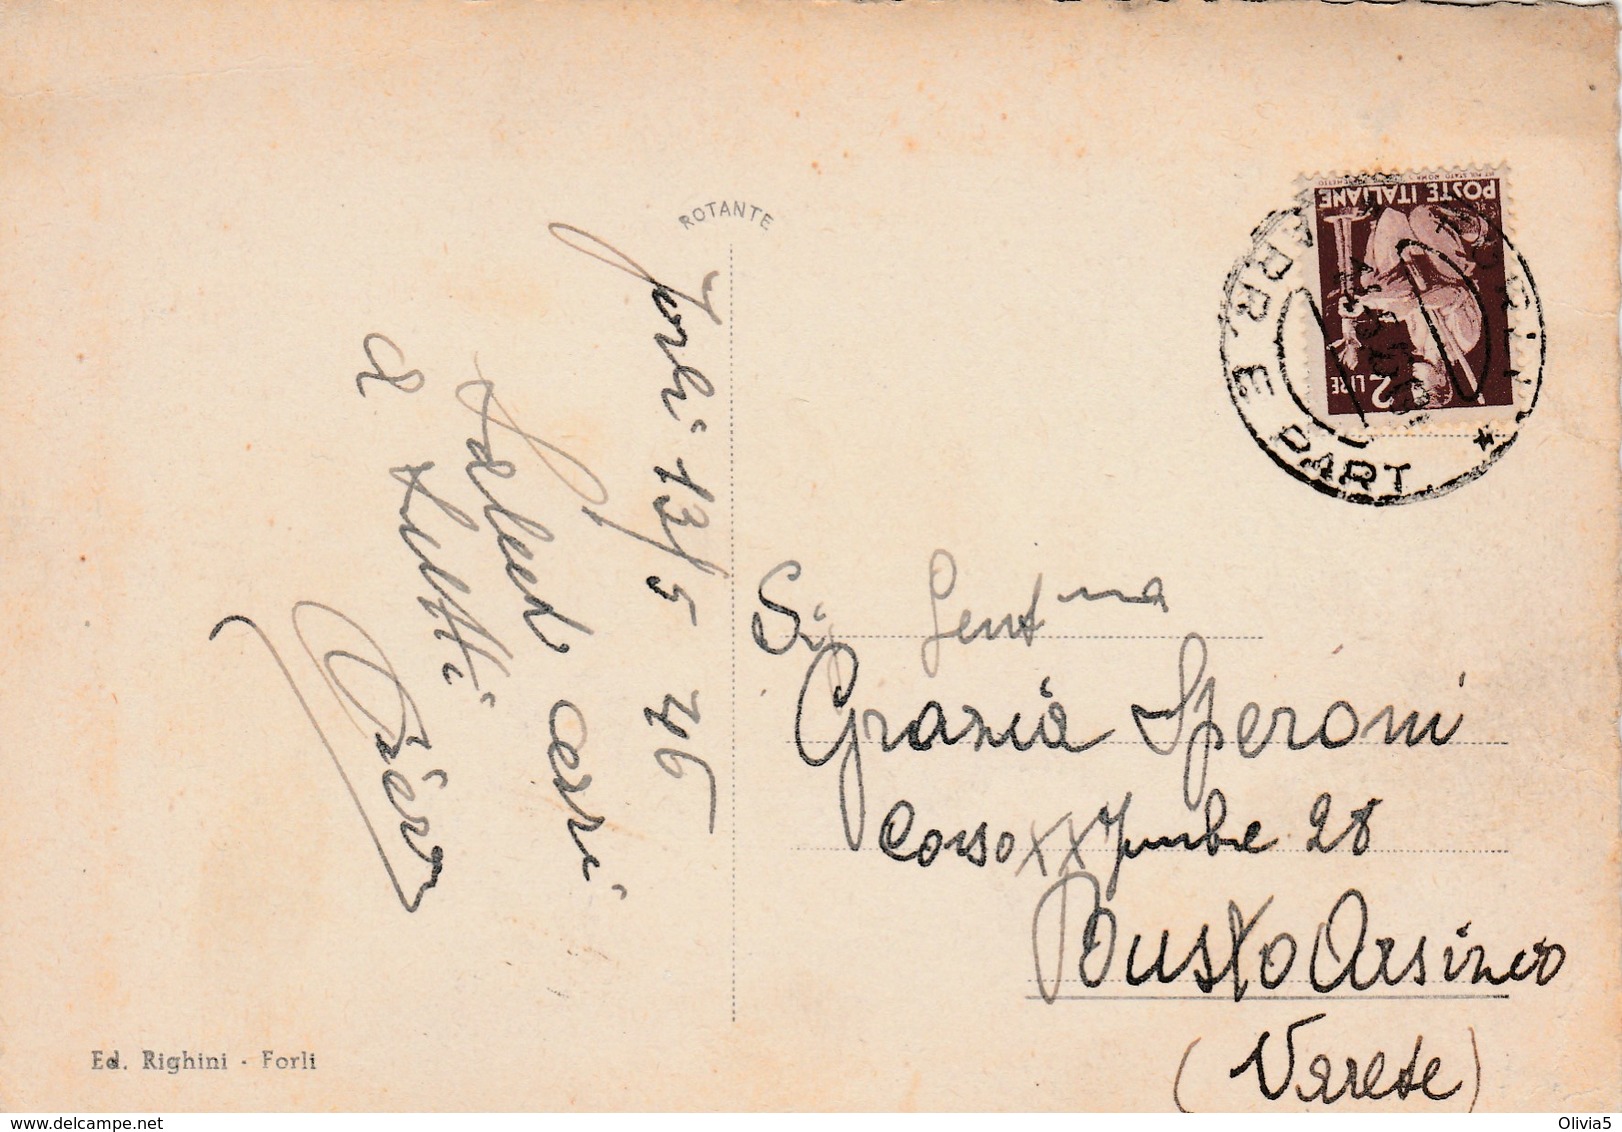 ROTANTE
Forlì 13/5 46
Saluti cari
a tutti
POSTE ITALIANE
2 LIRE
ARR. E PART.
Gent ma
Sig
Grazia Speroni
Corso XX 7mbre 28
Busto Arsizio
(Varese)
Ed. Righini - Forlì
delcampe.net
Olivia5